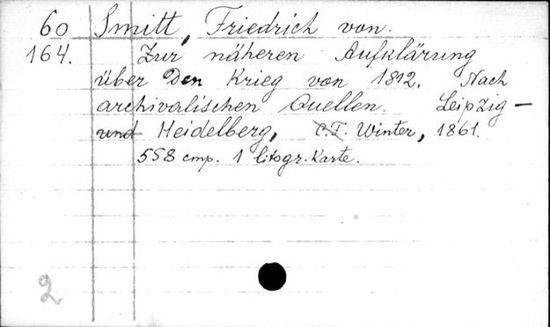 60 Smitt, Friedrich von.
164. Zur näheren Aufklärung
über Den Krieg von 1812. Nach
archivalischen Quellen. Leipzig –
und Heidelberg, C.F. Winter, 1861.
558 стр. 1 litogr. Karte.
2